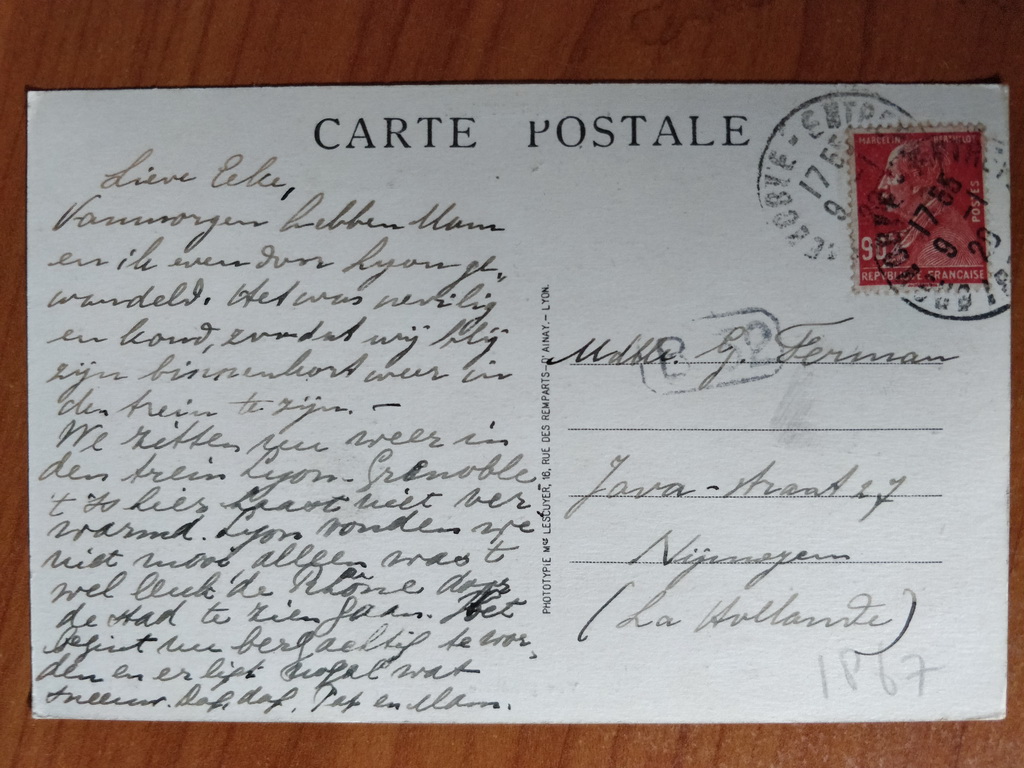 CARTE POSTALE
Lieve Eeke,
Vanmorgen hebben Mam
en ik even door Lyon ge„
wandeld. Het was
en koud, zoodat wij blij
zijn binnenkort weer in
den trein te zijn. —
We zitten nu weer in
den trein Lyon - Grenoble
't Is hier haast niet ver
warmd. Lyon vonden we
niet mooi, alleen was 't
wel leuk de Rhône door
de stad te zien gaan. Het
begint nu bergachtig te wor„
den en er ligt nogal wat
sneeuw. Dag, dag, Pap en Mam.
PHOTOTYPIE Mce LESCUYER, 16, RUE DES REMPARTS-D'AINAY. - LYON.
MARCELIN BERTHELOT
POSTES
90
REPUBLIQUE FRANCAISE
17 55
9
17 55
9 -1
29
Mdlle. G. Ferman
Java-straat 27
Nijmegen
(La Hollande)
1867